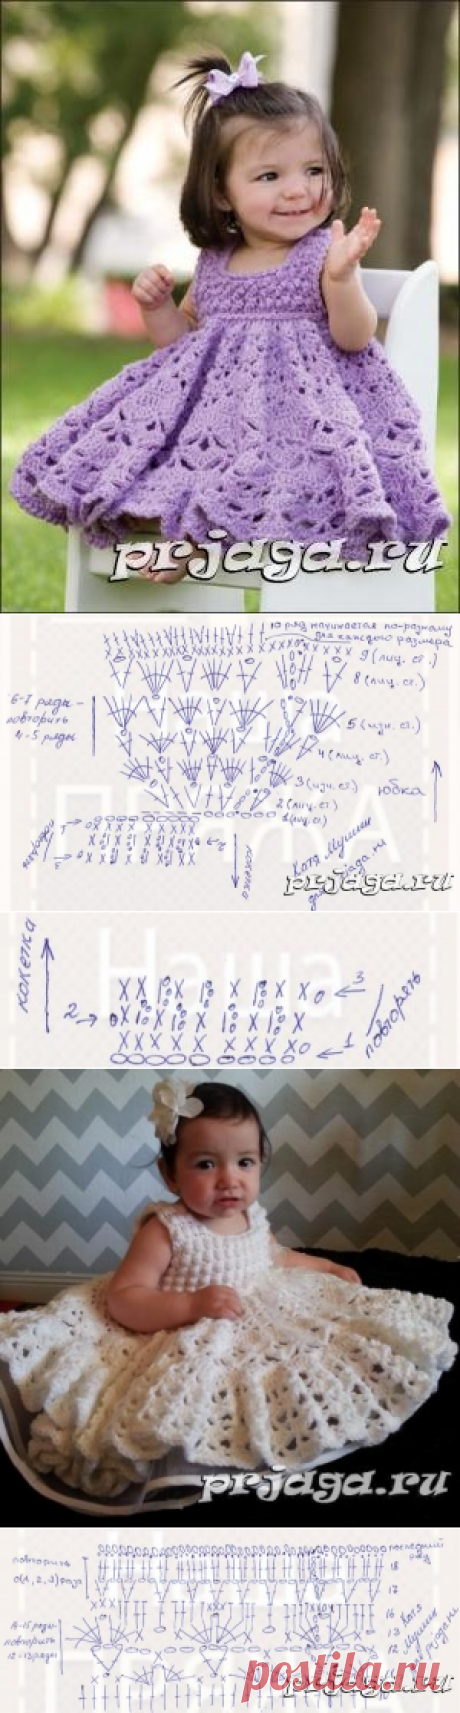 prjaga.ru
10 ряд начинается по-разному
для каждого размера
9 (лиц. ст.)
8 (лиц. ст.)
6-7 ряды -
повторить
4-5 ряды
5 (изн. ст.)
4 (лиц. ст.)
3 (изн. ст.)
юбка
2 (лиц. ст.)
1 (лиц. ст.)
кокетка
Катя Мушин
prjaga.ru
Наша
кокетка
3
2
1
повторять
prjaga.ru
повторить
0(1, 2, 3) раза
последний
ряд
18
17
16
14-15 ряды
повторить
12-13 ряды
13
12
Катя
Мушин
postila.ru